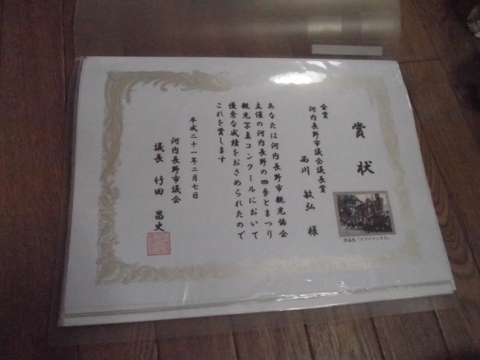 賞状
金賞
河内長野市議会議長賞
西川 敏弘 様
あなたは河内長野市観光協会
主催の河内長野の四季とまつり
観光写真コンクールにおいて
優秀な成績をおさめられたので
これを賞します
平成二十一年二月七日
河内長野市議会
議長 竹田 昌史